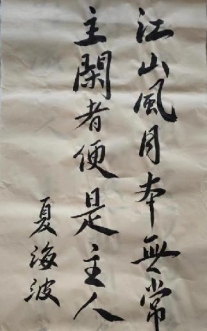 江山風月本無常
主閑者便是主人
夏海波